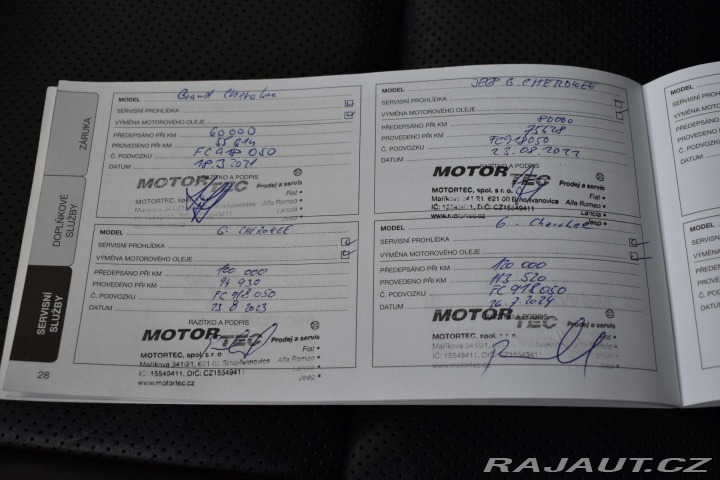 ZÁRUKA
DOPLŇKOVÉ
SLUŽBY
SERVISNÍ
SLUŽBY
28
MODEL Grand Cherokee
SERVISNÍ PROHLÍDKA
VÝMĚNA MOTOROVÉHO OLEJE
PŘEDEPSÁNO PŘI KM 60 000
PROVEDENO PŘI KM
Č. PODVOZKU FC918050
DATUM 18.3.2021
RAZÍTKO A PODPIS
MOTORTEC Prodej a servis
Fiat •
Alfa Romeo •
Lancia •
Jeep •
MODEL JEEP G. CHEROKEE
SERVISNÍ PROHLÍDKA
VÝMĚNA MOTOROVÉHO OLEJE
PŘEDEPSÁNO PŘI KM 80000
PROVEDENO PŘI KM 75628
Č. PODVOZKU FC918050
DATUM 23.08.2022
RAZÍTKO A PODPIS
MOTORTEC Prodej a servis
MOTORTEC, spol. s r. o. Fiat •
Maříkova 341/21, 621 00 Brno-Ivanovice Alfa Romeo •
IČ: 15549411, DIČ: CZ15549411 Lancia •
www.motortec.cz Jeep •
MODEL G. CHEROKEE
SERVISNÍ PROHLÍDKA
VÝMĚNA MOTOROVÉHO OLEJE
PŘEDEPSÁNO PŘI KM 100 000
PROVEDENO PŘI KM 94 930
Č. PODVOZKU FC918050
DATUM 23.8.2023
RAZÍTKO A PODPIS
MOTORTEC Prodej a servis
Fiat •
MOTORTEC, spol. s r. o. Alfa Romeo •
Maříkova 341/21, 621 00 Brno-Ivanovice Lancia •
IČ: 15549411, DIČ: CZ15549411 Jeep •
www.motortec.cz
MODEL G. Cherokee
SERVISNÍ PROHLÍDKA
VÝMĚNA MOTOROVÉHO OLEJE
PŘEDEPSÁNO PŘI KM 120 000
PROVEDENO PŘI KM 113 520
Č. PODVOZKU FC918050
DATUM 26.7.2024
RAZÍTKO A PODPIS
MOTORTEC Prodej a servis
MOTORTEC, spol. s r. o. Fiat •
Maříkova 341/21, Alfa Romeo •
IČ: 15549411, DIČ: CZ15549411 Lancia •
www.motortec.cz Jeep •
RAJAUT.CZ